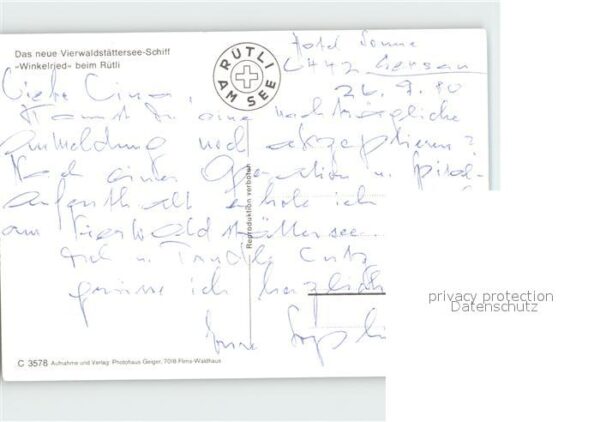 Das neue Vierwaldstättersee-Schiff
«Winkelried» beim Rütli
RÜTLI AM SEE
Hotel Sonne
Gersau
26.9.80
Liebe
Kannst Du eine nachträgliche
Anmeldung noch akzeptieren?
Nach einer Operation u. Spital-
aufenthalt erhole ich
am Vierwaldstättersee.
u.
grüsse ich herzlich
Reproduktion verboten
C 3578 Aufnahme und Verlag: Photohaus Geiger, 7018 Flims-Waldhaus
privacy protection
Datenschutz